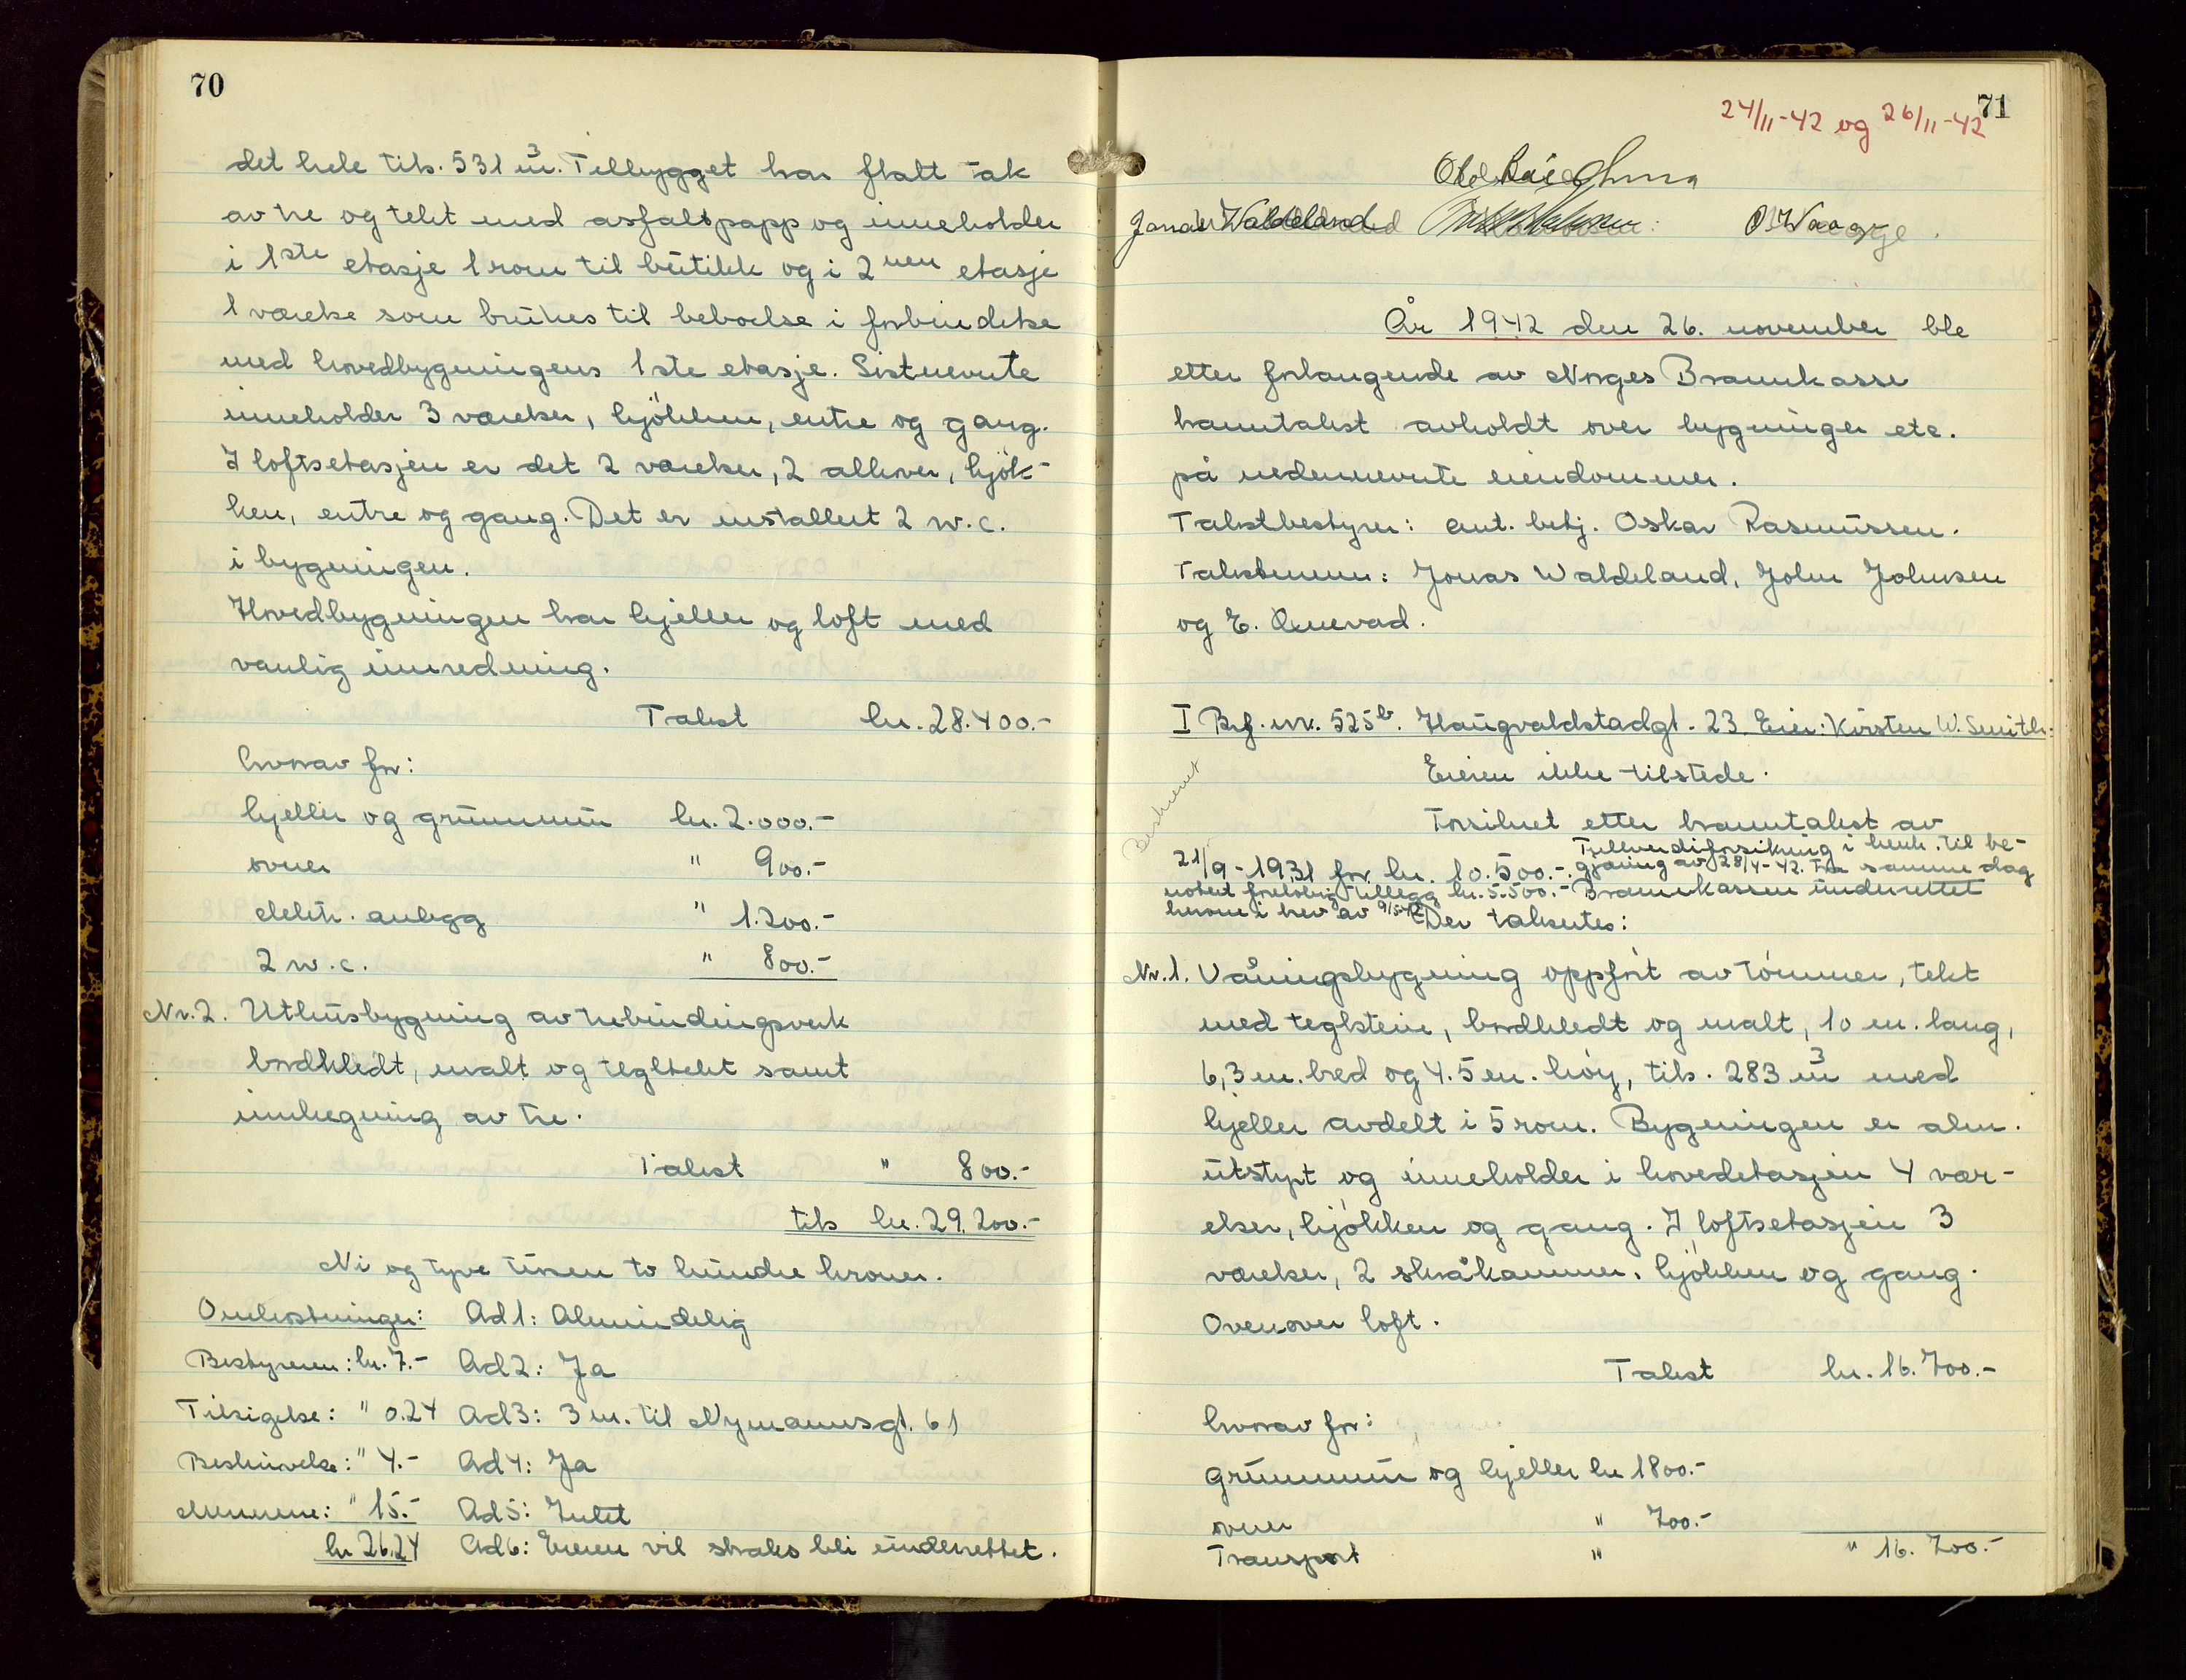 70
det hele tils. 531 m³. Tilbygget har flatt tak
av tre og tekt med asfaltpapp og inneholder
i 1ste etasje 1 rom til butikk og i 2nen etasje
1 værelse som brukes til beboelse i forbindelse
med hovedbygningens 1ste etasje. Sistnevnte
inneholder 3 værelser, kjøkken, entre og gang.
I loftsetasjen er det 2 værelser, 2 alkover, kjøk-
ken, entre og gang. Det er installert 2 w.c.
i bygningen.
Hovedbygningen har kjeller og loft med
vanlig innredning.
Takst kr. 28.400.-
hvorav for:
kjeller og grunnmur kr. 2.000.-
ovner " 900.-
elektr. anlegg " 1.200.-
2 w.c. " 800.-
Nr. 2. Uthusbygning av trebindingsverk
bordkledt, malt og tegltekt samt
innhegning av tre.
Takst " 800.-
tils kr. 29.200.-
Ni og tyve tusen to hundre kroner.
Omkostninger: Ad 1: Almindelig
Bestyreren: kr. 7.- Ad 2: Ja
Tilsigelse: " 0.24 Ad 3: 3 m. til Nymannsgt. 61
Beskrivelse: " 4.- Ad 4: Ja
Mennene: " 15.- Ad 5: Intet
kr 26.24 Ad 6: Eieren vil straks bli underrettet.
71
24/11-42 og 26/11-42
Jonas Waldeland O. Waage.
År 1942 den 26. november ble
etter forlangende av Norges Brannkasse
branntakst avholdt over bygninger etc.
på nedennevnte eiendommer.
Takstbestyrer: ant. betj. Oskar Rasmussen.
Takstmenn: Jonas Waldeland, John Johnsen
og E. Quevad.
I Brf. nr. 525b. Haugvaldstadgt. 23 Eier: Kirsten W. Smith:
Eieren ikke tilstede.
Beskrevet
Forsikret etter branntakst av
Fullverdiforsikring i henh. til be-
21/9-1931 for kr. 10.500.-. gjæring av 28/4-42. Fra samme dag
notert foreløbig tillegg kr. 5.500.- Brannkassen underrettet
herom i brev av 9/5-42 Der takseres:
Nr. 1. Våningsbygning oppført av tømmer, tekt
med teglstein, bordkledt og malt, 10 m. lang,
6,3 m. bred og 4.5 m. høy, tils. 283 m³ med
kjeller avdelt i 5 rom. Bygningen er alm.
utstyrt og inneholder i hovedetasjen 4 vær-
elser, kjøkken og gang. I loftsetasjen 3
værelser, 2 skråkammer, kjøkken og gang.
Ovenover loft.
Takst kr. 16.700.-
hvorav for:
grunnmur og kjeller kr 1800.-
ovner " 700.-
Transport " " 16.700.-